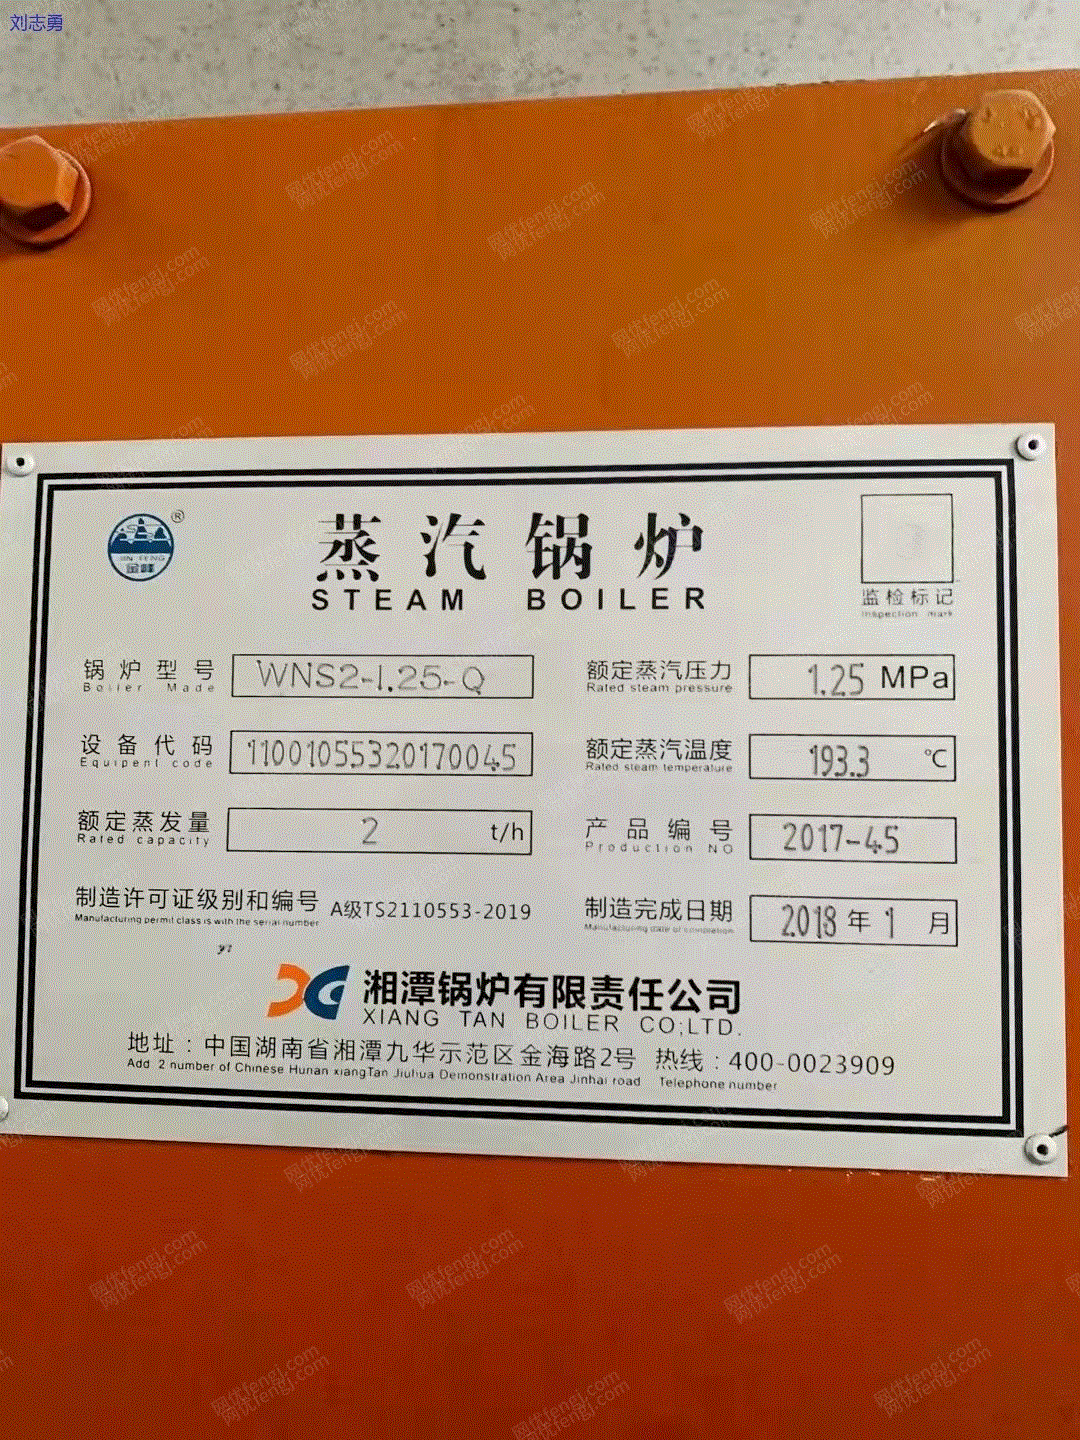 刘志勇
®
JIN FENG
金峰
蒸汽锅炉
STEAM BOILER
监检标记
Inspection mark
锅炉型号 WNS2-1.25-Q 额定蒸汽压力 1.25 MPa
Boiler Made Rated steam pressure
设备代码 11001055320170045 额定蒸汽温度 193.3 ℃
Equipent code Rated steam temperature
额定蒸发量 2 t/h 产品编号 2017-45
Rated capacity Production NO
制造许可证级别和编号 A级TS2110553-2019 制造完成日期 2018 年 1 月
Manufacturing permit class is with the serial number Manufacturing date of completion
湘潭锅炉有限责任公司
XIANG TAN BOILER CO;LTD.
地址：中国湖南省湘潭九华示范区金海路2号 热线：400-0023909
Add 2 number of Chinese Hunan xiangTan Jiuhua Demonstration Area Jinhai road Telephone number
网优fengj.com